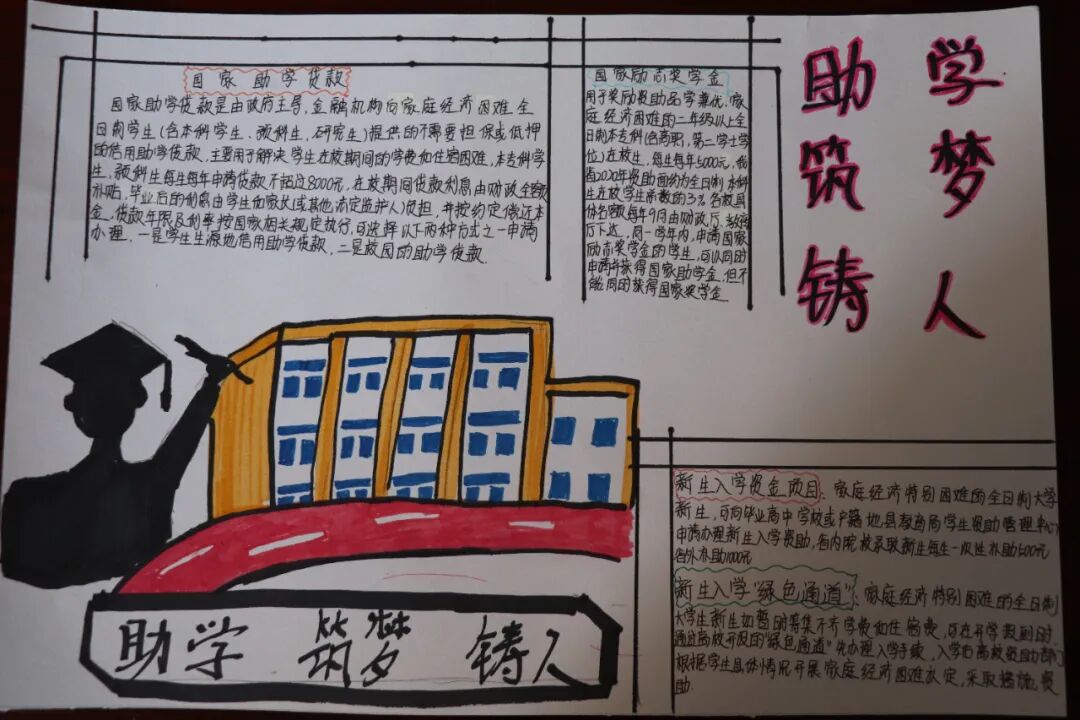 助学
筑梦
铸人
国家助学贷款
国家助学贷款是由政府主导,金融机构向家庭经济困难全
日制学生(含本科学生、预科生、研究生)提供的不需要担保或抵押
的信用助学贷款,主要用于解决学生在校期间的学费和住宿困难,本专科学
生,预科生每生每年申请贷款不超过8000元,在校期间贷款利息由财政全额
补贴,毕业后的利息由学生和家长(或其他法定监护人)负担,并按约定偿还本
金,贷款年限及利率按国家相关规定执行,可选择以下两种方式之一申请
办理,一是学生生源地信用助学贷款,二是校园的助学贷款.
国家励志奖学金
用于奖励资助品学兼优、家
庭经济困难的二年级以上全
日制本专科(含高职,第二学士学
位)在校生,每生每年5000元,我
省2020年资助面约为全日制本科
生在校学生总数的3%各校具
体名额每年9月由财政厅、教育
厅下达,同一学年内,申请国家
励志奖学金的学生,可以同时
申请并获得国家助学金,但不
能同时获得国家奖学金
新生入学资金项目:家庭经济特别困难的全日制大学
新生,可向毕业高中学校或户籍地县教育局学生资助管理中心
申请办理新生入学资助,省内院校录取新生每生一次性补助500元
省外补助1000元
新生入学"绿色通道":家庭经济特别困难的全日制
大学生新生如暂时筹集不齐学费和住宿费,可在开学报到时
通过高校开设的"绿色通道"先办理入学手续,入学后高校资助部门
根据学生具体情况开展家庭经济困难认定,采取措施,资
助.
助学 筑梦 铸人